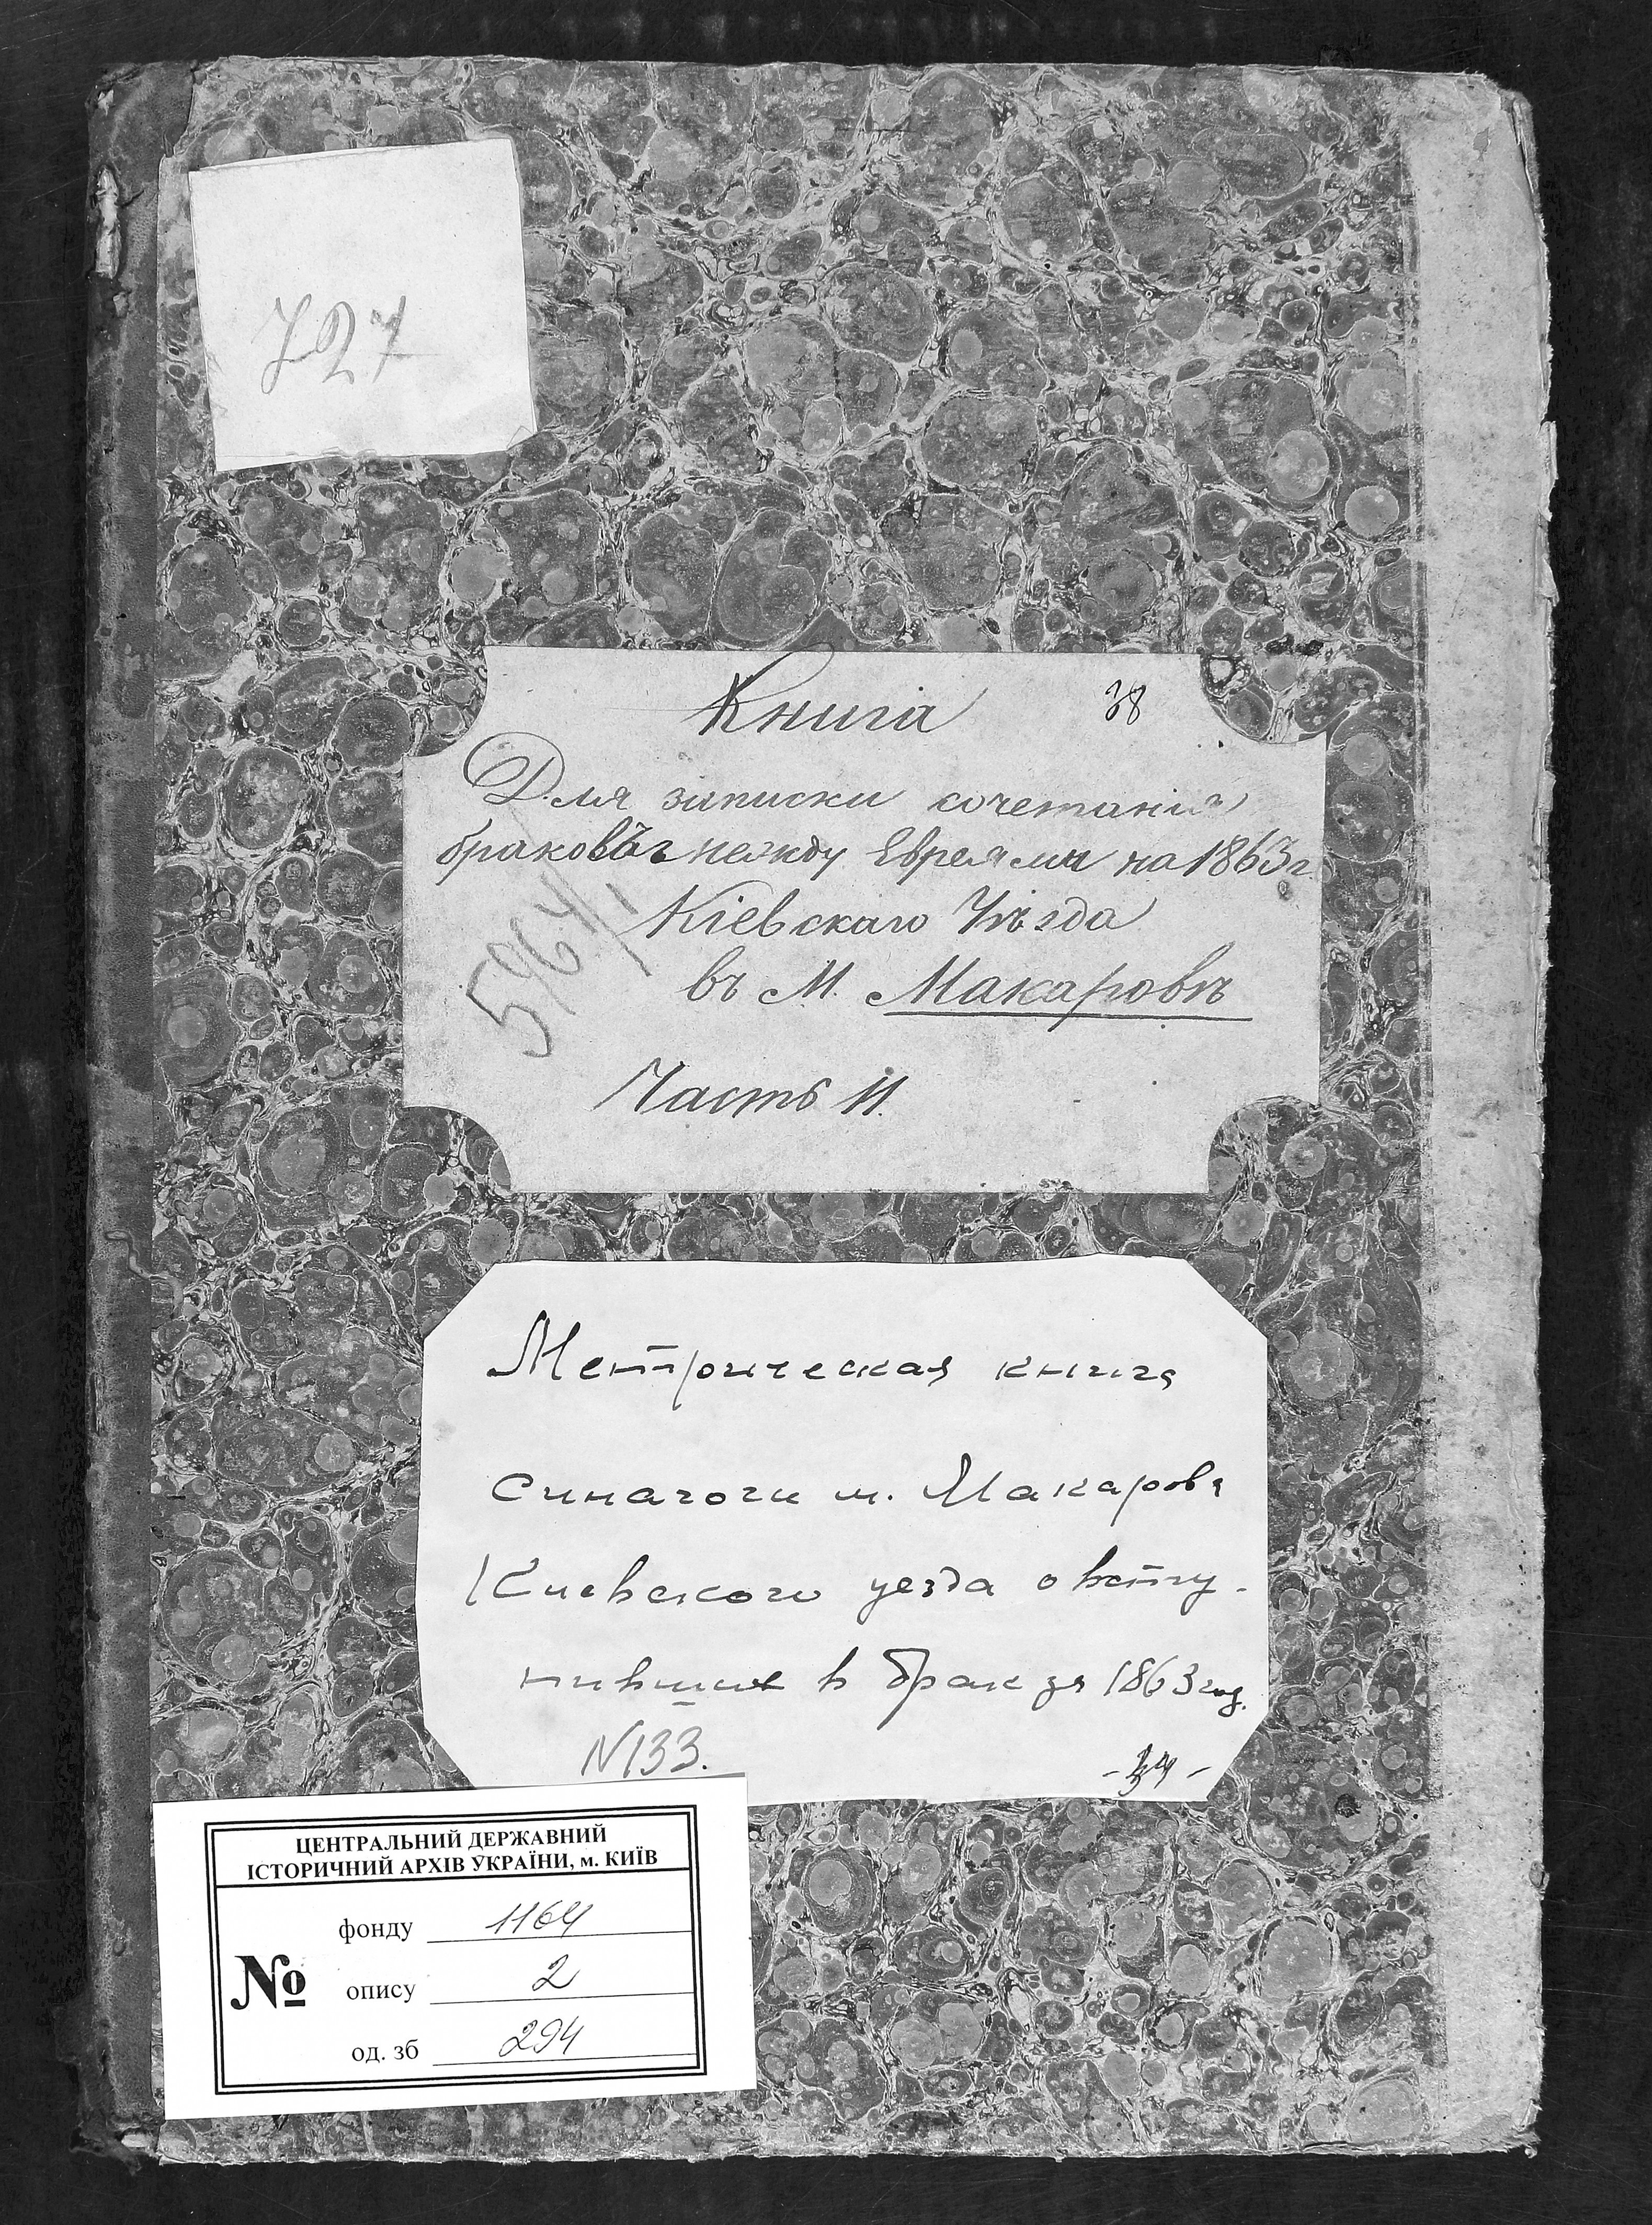 727
Книга 38
Для записки сочетанія
браковъ между Евреями на 1863 г.
Кіевскаго Уѣзда
въ М. Макаровѣ
5964/1
Часть II.
Метрическая книга
синагоги м. Макарова
Киевского уезда о всту-
пивших в брак за 1863 год.
N 133.
ЦЕНТРАЛЬНИЙ ДЕРЖАВНИЙ
ІСТОРИЧНИЙ АРХІВ УКРАЇНИ, м. КИЇВ
фонду 1164
№ опису 2
од. зб 294